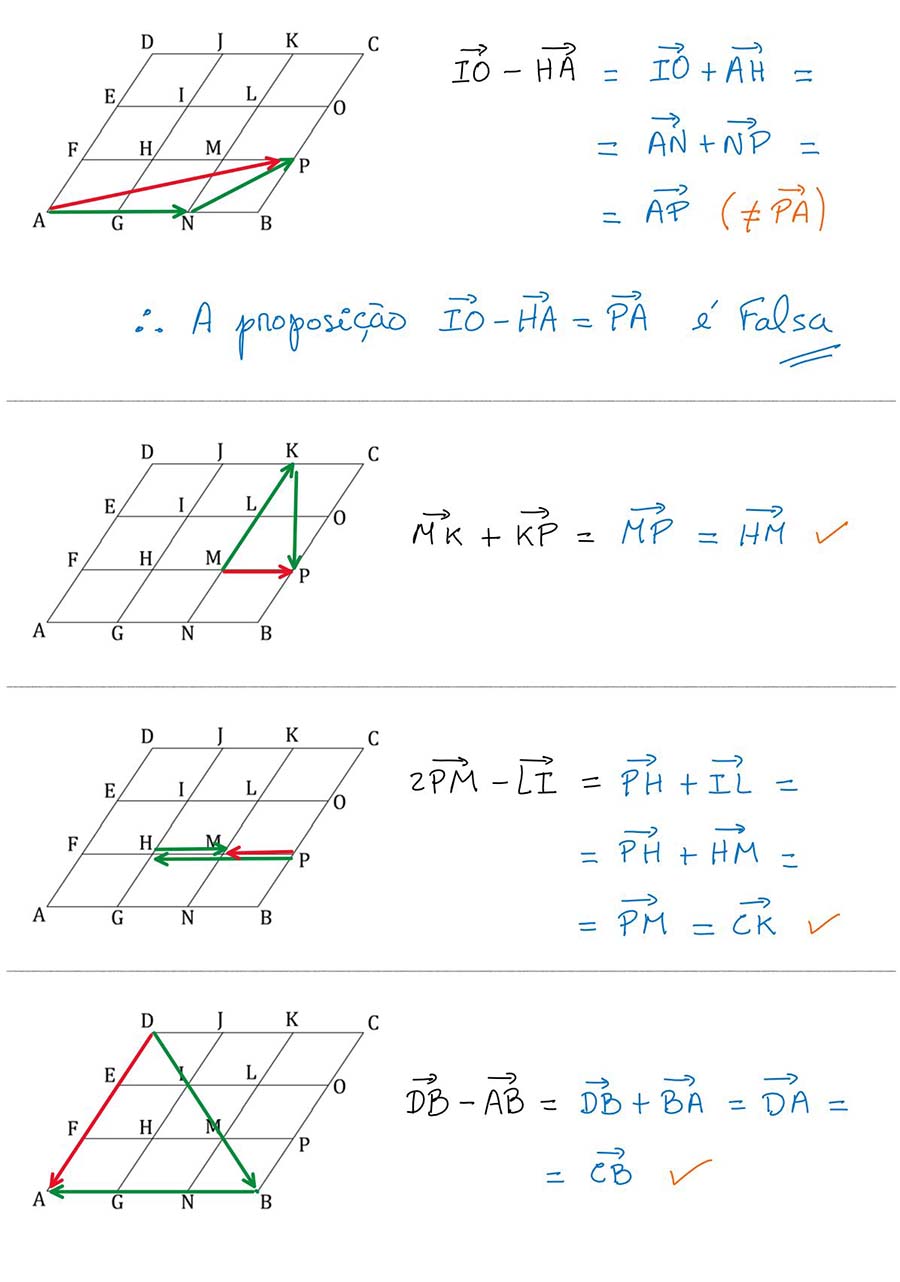 D J K C
E I L O
F H M P
A G N B
$\vec{IO} - \vec{HA} = \vec{IO} + \vec{AH} =$
$= \vec{AN} + \vec{NP} =$
$= \vec{AP} \ (\neq \vec{PA})$
∴ A proposição $\vec{IO} - \vec{HA} = \vec{PA}$ é Falsa
D J K C
E I L O
F H M P
A G N B
$\vec{MK} + \vec{KP} = \vec{MP} = \vec{HM}$ ✓
D J K C
E I L O
F H M P
A G N B
$2\vec{PM} - \vec{LI} = \vec{PH} + \vec{IL} =$
$= \vec{PH} + \vec{HM} =$
$= \vec{PM} = \vec{CK}$ ✓
D J K C
E I L O
F H M P
A G N B
$\vec{DB} - \vec{AB} = \vec{DB} + \vec{BA} = \vec{DA} =$
$= \vec{CB}$ ✓